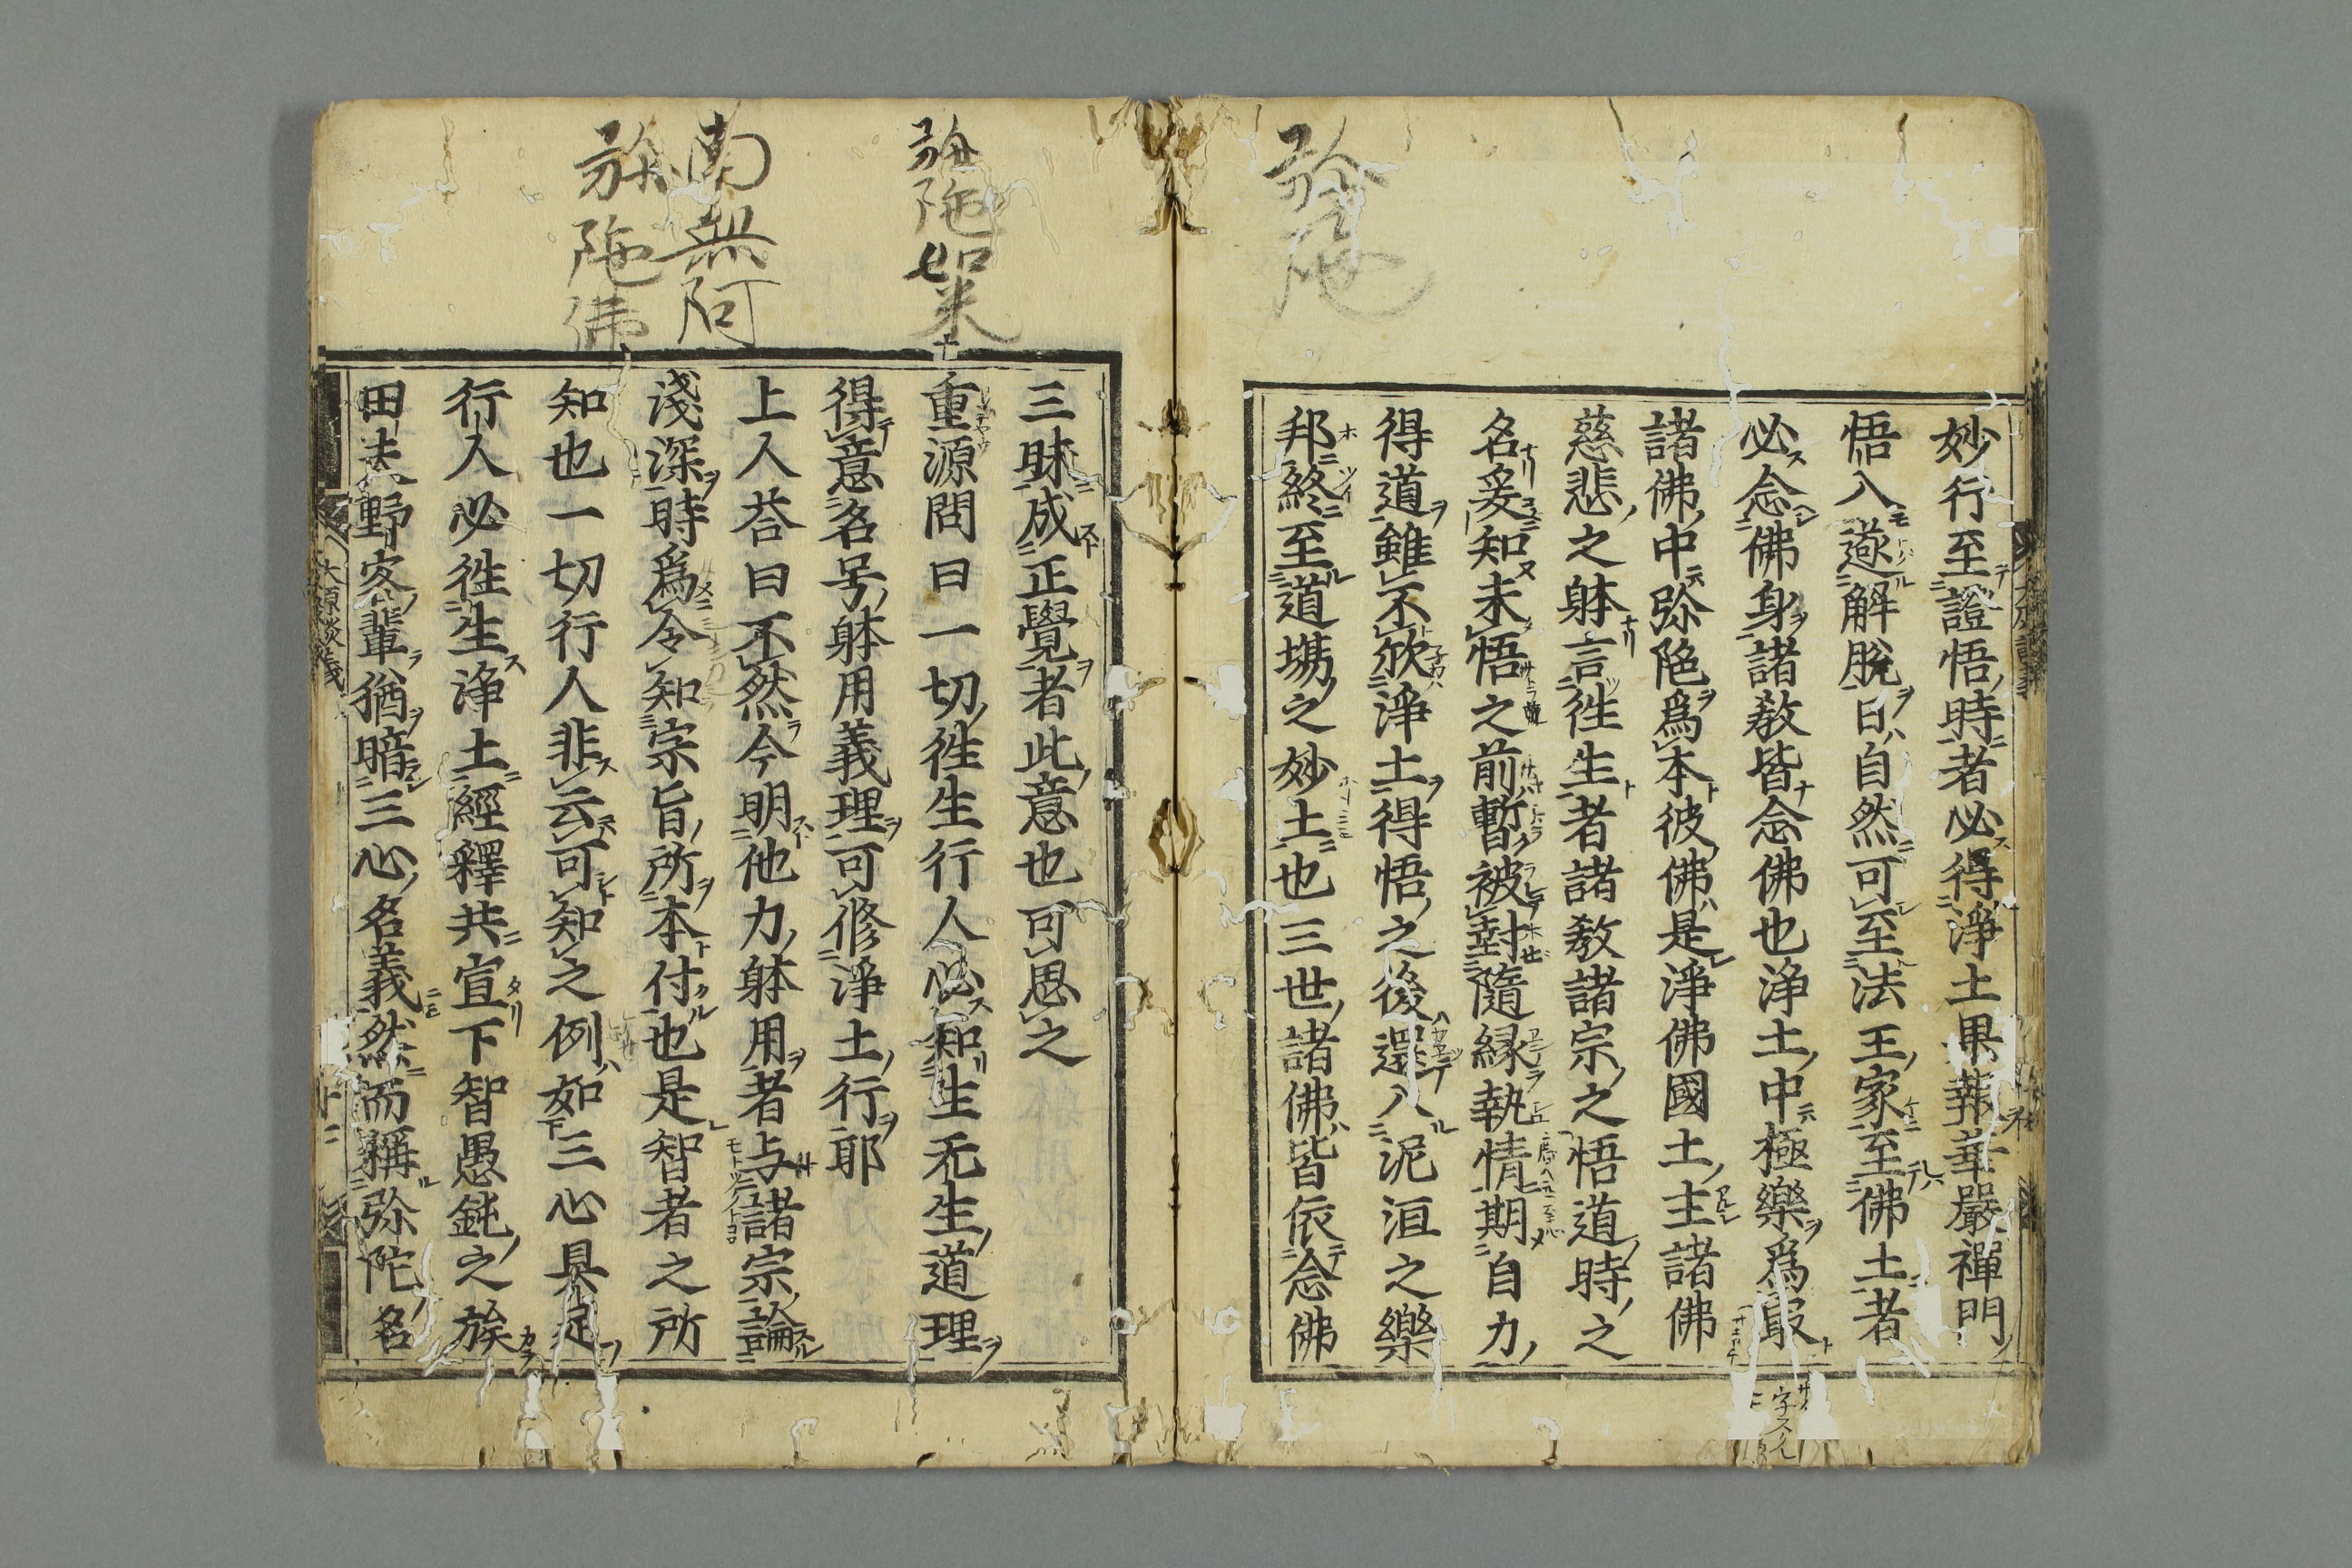 弥陀
妙行至證悟時者必得淨土果報華嚴禪門
悟入遊解脱日自然可至法王家至佛土者
必念佛身諸教皆念佛也浄土中極樂爲最
諸佛中弥陁爲本彼佛是淨佛國土主諸佛
慈悲之躰言徃生者諸教諸宗之悟道時之
名爰知未悟之前暫被封隨縁執情期自力
得道雖不欣淨土得悟之後還入泥洹之樂
邦終至道場之妙土也三世諸佛皆依念佛
弥陀如来
南無阿
弥陀佛
三昧成正覺者此意也可思之
重源問曰一切徃生行人必知生无生道理
得意名号躰用義理可修淨土行耶
上人荅曰不然今明他力躰用者与諸宗論
淺深時爲令知宗旨所本付也是智者之所
知也一切行人非云可知之例如三心具足
行人必徃生浄土經釋共宣下智愚鈍之族
田夫野客輩猶暗三心名義然而稱弥陀名
大原談義
十二